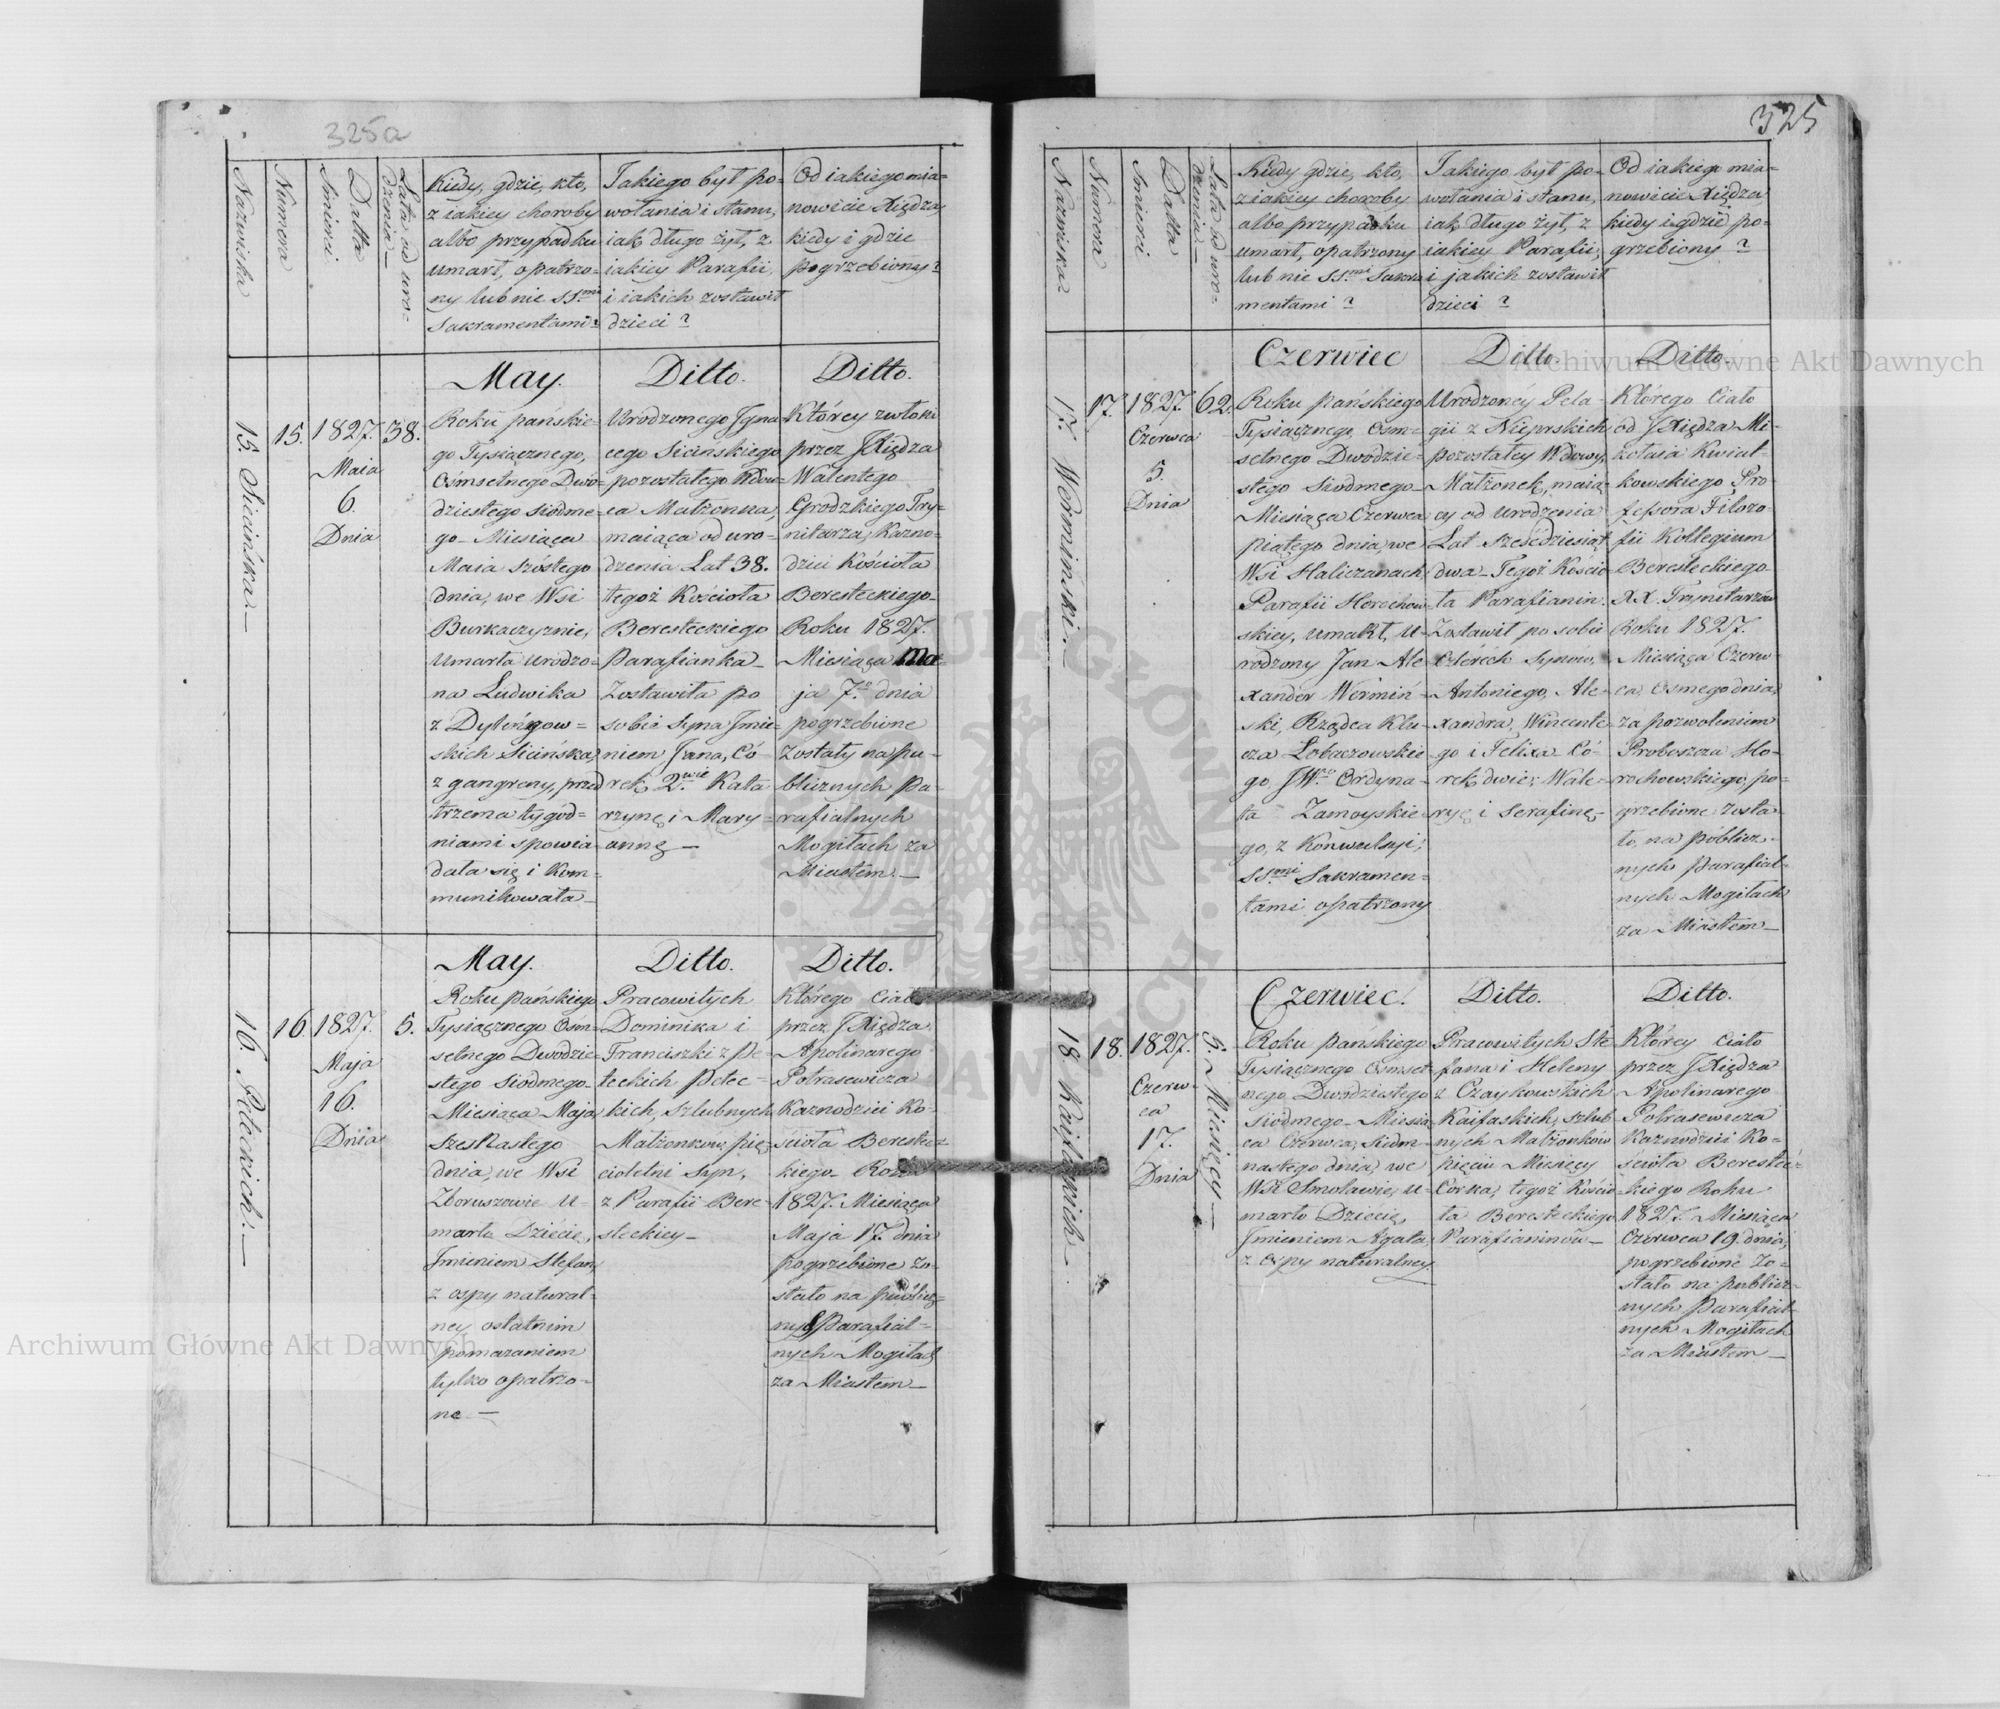 325a
Nazwiska
Numera
Datta
Smierci
Lata od uro=
dzenia_
Kiedy, gdzie, kto,
z iakiey choroby
albo przypadku
umarł, opatrzo=
ny lub nie SS.mi
Sakramentami?
Jakiego był po=
wołania i stanu,
iak długo żył, z
iakiey Parafii,
i iakich zostawił
dzieci?
Od iakiego mia=
nowicie Xiędza,
kiedy i gdzie
pogrzebiony?
15. Sicińska._
15.
1827.
Maia
6.
Dnia
38.
May.
Roku pańskie=
go Tysiącznego,
Ośmsetnego Dwó=
dziestego siódme=
go_ Miesiąca
Maia szóstego
dnia, we Wsi
Burkaczyznie,
umarła urodzo=
na Ludwika
skich Sicińska,
z gangreny, przed
trzema tygód=
niami spowia=
dała się i kom=
munikowała_
Ditto.
Urodzonego Jgna
cego Sicinskiego
pozostałego Wdow=
ca Małżonka,
maiąca od uro=
dzenia Lat 38.
tegoż Kościoła
Beresteckiego
Parafianka_
Zostawiła po
sobie syna Jmie=
niem Jana, Có
rek 2.wie Kata
rzynę i Mary=
annę_
Ditto.
Którey zwłoki
przez JXiędza
Walentego
Grodzkiego Try=
nitarza, Kazno=
dziei Kościoła
Beresteckiego_
Roku 1827.
Miesiąca Ma=
ja 7.o dnia
pogrzebione
zostały na pu=
blicznych Pa=
rafialnych
Mogiłach za
Miastem._
16. Peteckich._
16.
1827.
Maja
16.
Dnia
5.
May.
Roku pańskiego
Tysiącznego Ośm=
setnego Dwódzie=
stego Siódmego_
Miesiąca Maja
szesnastego
dnia, we Wsi
Zboruszowie u=
marło Dziécie,
Jmieniem Stefan,
z ospy natural=
ney ostatnim
pomazaniem
tylko opatrzo=
ne_
Ditto.
Pracowitych
Dominika i
Franciszki z Pe=
teckich Petec=
kich, szlubnych
Małżonków, pię
cioletni syn,
z Parafii Bere=
steckiey_
Ditto.
Którego ciało
przez JXiędza
Apolinarego
Potrasewicza
Kaznodziei Ko=
ścioła Berestec=
kiego_ Roku
1827. Miesiąca
Maja 17. dnia
pogrzebione zo=
stało na publicz=
nych Parafial=
nych Mogiłach
za Miastem_
325
Nazwiska
Numera
Datta
Smierci
Lata od uro=
dzenia_
Kiedy gdzie, kto,
z iakiey choroby
albo przypadku
umarł, opatrzony
lub nie SS.mi Sakra
mentami?
Jakiego był po=
wołania i stanu,
iak długo żył, z
iakiey Parafii,
i jakich zostawił
dzieci?
Od iakiego mia=
nowicie Xiędza
kiedy i gdzie po=
grzebiony?
17. Wermiński._
17.
1827
Czerwca
5.
Dnia
62.
Czerwiec
Roku pańskiego
Tysiącznego Ośm=
setnego Dwódzie=
stego Siódmego_
Miesiąca Czerwca
piątego dnia, we
Wsi Haliczanach
Parafii Horochow=
skiey, umarł, U=
rodzony Jan Ale
xander Wermiń=
ski, Rządca Klu=
cza Łobaczowskie
go JW.o Ordyna=
ta Zamoyskie
go, z Konwulsyi,
SS.mi Sakramen=
tami opatrzony
Ditto.
Urodzonéy Pela=
gii z
pozostałey Wdowy,
Małżonek, maią=
cy od urodzenia
Lat sześćdziesiąt
dwa_ Tegoż Koscio
ła Parafianin.
Zostawił po sobie
cztérech synów,
Antoniego, Ale=
xandra, Wincente=
go i Felixa. Có=
rek dwie; Wale=
ryę i Serafinę_
Ditto.
Którego Ciało
od JXiędza Mi=
kołaia Kwiat=
kowskiego Pro=
fessora Filozo=
fii Kollegium
Beresteckiego
XX. Trynitarzow
Roku 1827.
Miesiąca Czerw=
ca, Osmego dnia,
za pozwoleniem
Proboszcza Ho=
rochowskiego, po=
grzebione zosta=
ło, na publicz=
nych Parafial=
nych Mogiłach
za Miastem_
18. Kaifaskich.
18.
1827.
Czerw=
ca
17.
Dnia
5. Miesięcy_
Czerwiec.
Roku pańskiego
Tysiącznego Osmset
nego Dwódziestego
siódmego_ Miesią
ca Czerwca, siédm=
nastego dnia, we
Wsi Smolawie, u=
marło Dziecię,
Jmieniem Agata,
z ospy naturalney
Ditto.
Pracowitych Ste
fana i Heleny
z Czaykowskich
Kaifaskich, szlub=
nych Małżonków
pięciu Miesięcy
Corka, tegoż Koscio=
ła Beresteckiego
Parafianinów_
Ditto.
Którey ciało
przez JXiędza
Apolinarego
Potrasewicza
Kaznodziei Ko=
ścioła Berestec=
kiego Roku
1827. Miesiąca
Czerwca 19. dnia,
pogrzebione zo=
stało na publicz=
nych Parafial=
nych Mogiłach
za Miastem_
Archiwum Główne Akt Dawnych
Archiwum Główne Akt Dawnych
ARCHIWUM GŁÓWNE AKT DAWNYCH